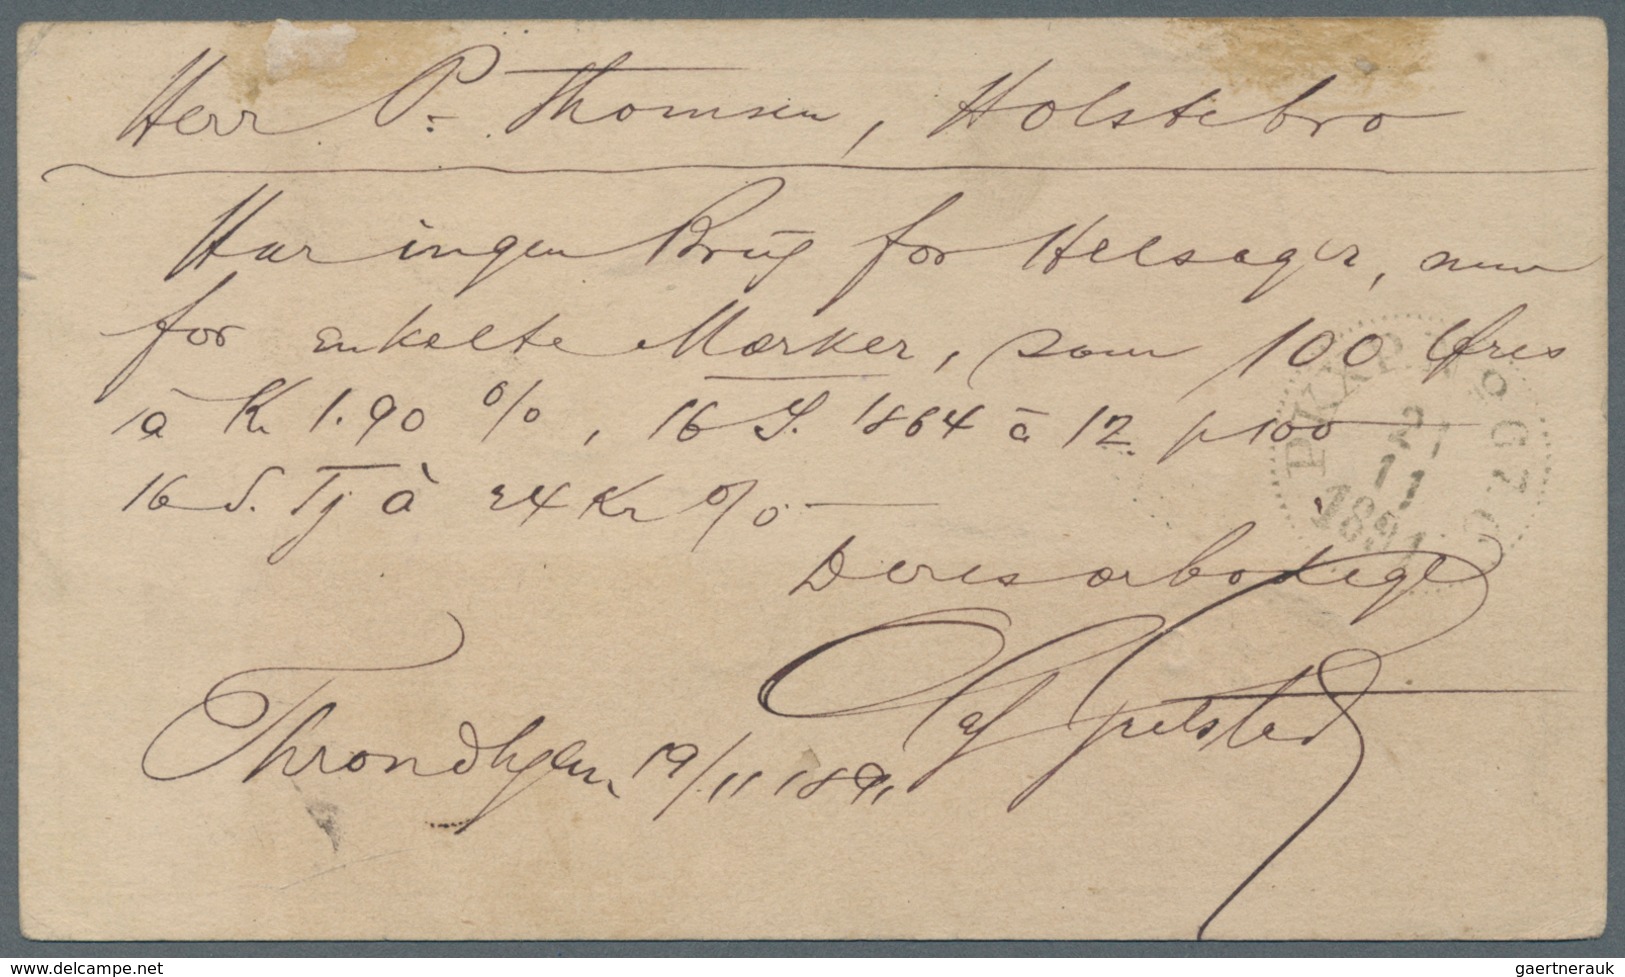 Herr P. Thomsen, Holstebro
Har ingen Brug for Helsager, kun
for enkelte Mærker, som 100 Øres
à Kr 1.90 %, 16 S. 1864 à 12 p 100
16 S. Tj à 24 Kr %
Deres ærbødigst
Throndhjem 19/11 1891
PKXP. No 67
21
11
1891
delcampe.net
gaertnerauk